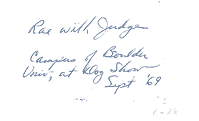 Rae with Judge
Campus of Boulder
Univ, at Dog Show
Sept '69